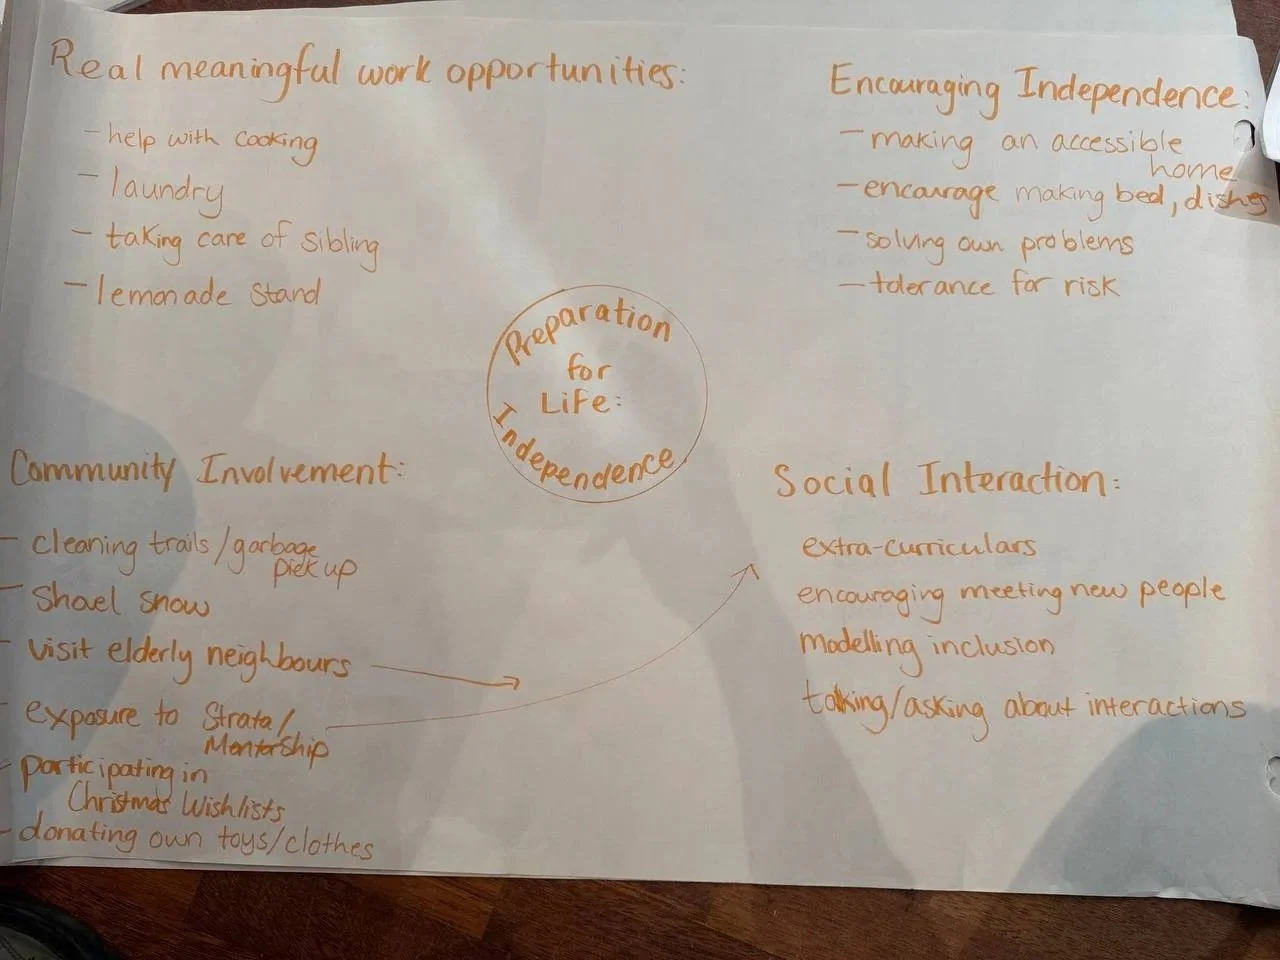 Real meaningful work opportunities:
- help with cooking
- laundry
- taking care of sibling
- lemonade stand
Encouraging Independence:
- making an accessible
home
- encourage making bed, dishes
- solving own problems
- tolerance for risk
Preparation
for
Life:
Independence
Community Involvement:
- cleaning trails/garbage
pick up
- Shoel snow
- visit elderly neighbours
- exposure to Strata/
Mentorship
- participating in
Christmas Wishlists
- donating own toys/clothes
Social Interaction:
extra-curriculars
encouraging meeting new people
modelling inclusion
talking/asking about interactions